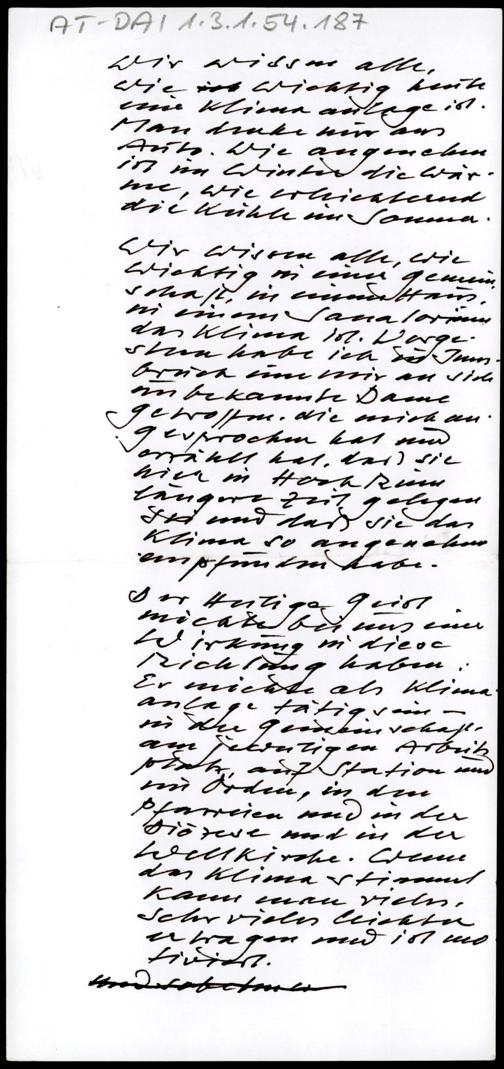 AT-DAI 1.3.1.54.187
Wir wissen alle,
wie wichtig heute
eine Klimaanlage ist.
Man denke nur ans
Auto. Wie angenehm
ist im Winter die Wär-
me, wie erleichternd
die Kühle im Sommer.
Wir wissen alle, wie
wichtig in einer Gemein
schaft, in einem Haus,
in einem Sanatorium
das Klima ist. Vorge-
stern habe ich in Inns-
bruck eine mir an sich
unbekannte Dame
getroffen. die mich an-
gesprochen hat und
erzählt hat, daß sie
hier in Hochzirl
längere Zeit gelegen
sei und daß sie das
Klima so angenehm
empfunden habe.
Der Heilige Geist
möchte bei uns eine
Wirkung in diese
Richtung haben:
Er möchte als Klima-
anlage tätig sein –
in der Gemeinschaft
am jeweiligen Arbeits
platz, auf Station und
im Orden, in den
Pfarreien und in der
Diözese und in der
Weltkirche. Wenn
das Klima stimmt
kann man vieles,
sehr vieles leichter
ertragen und ist mo
tiviert.